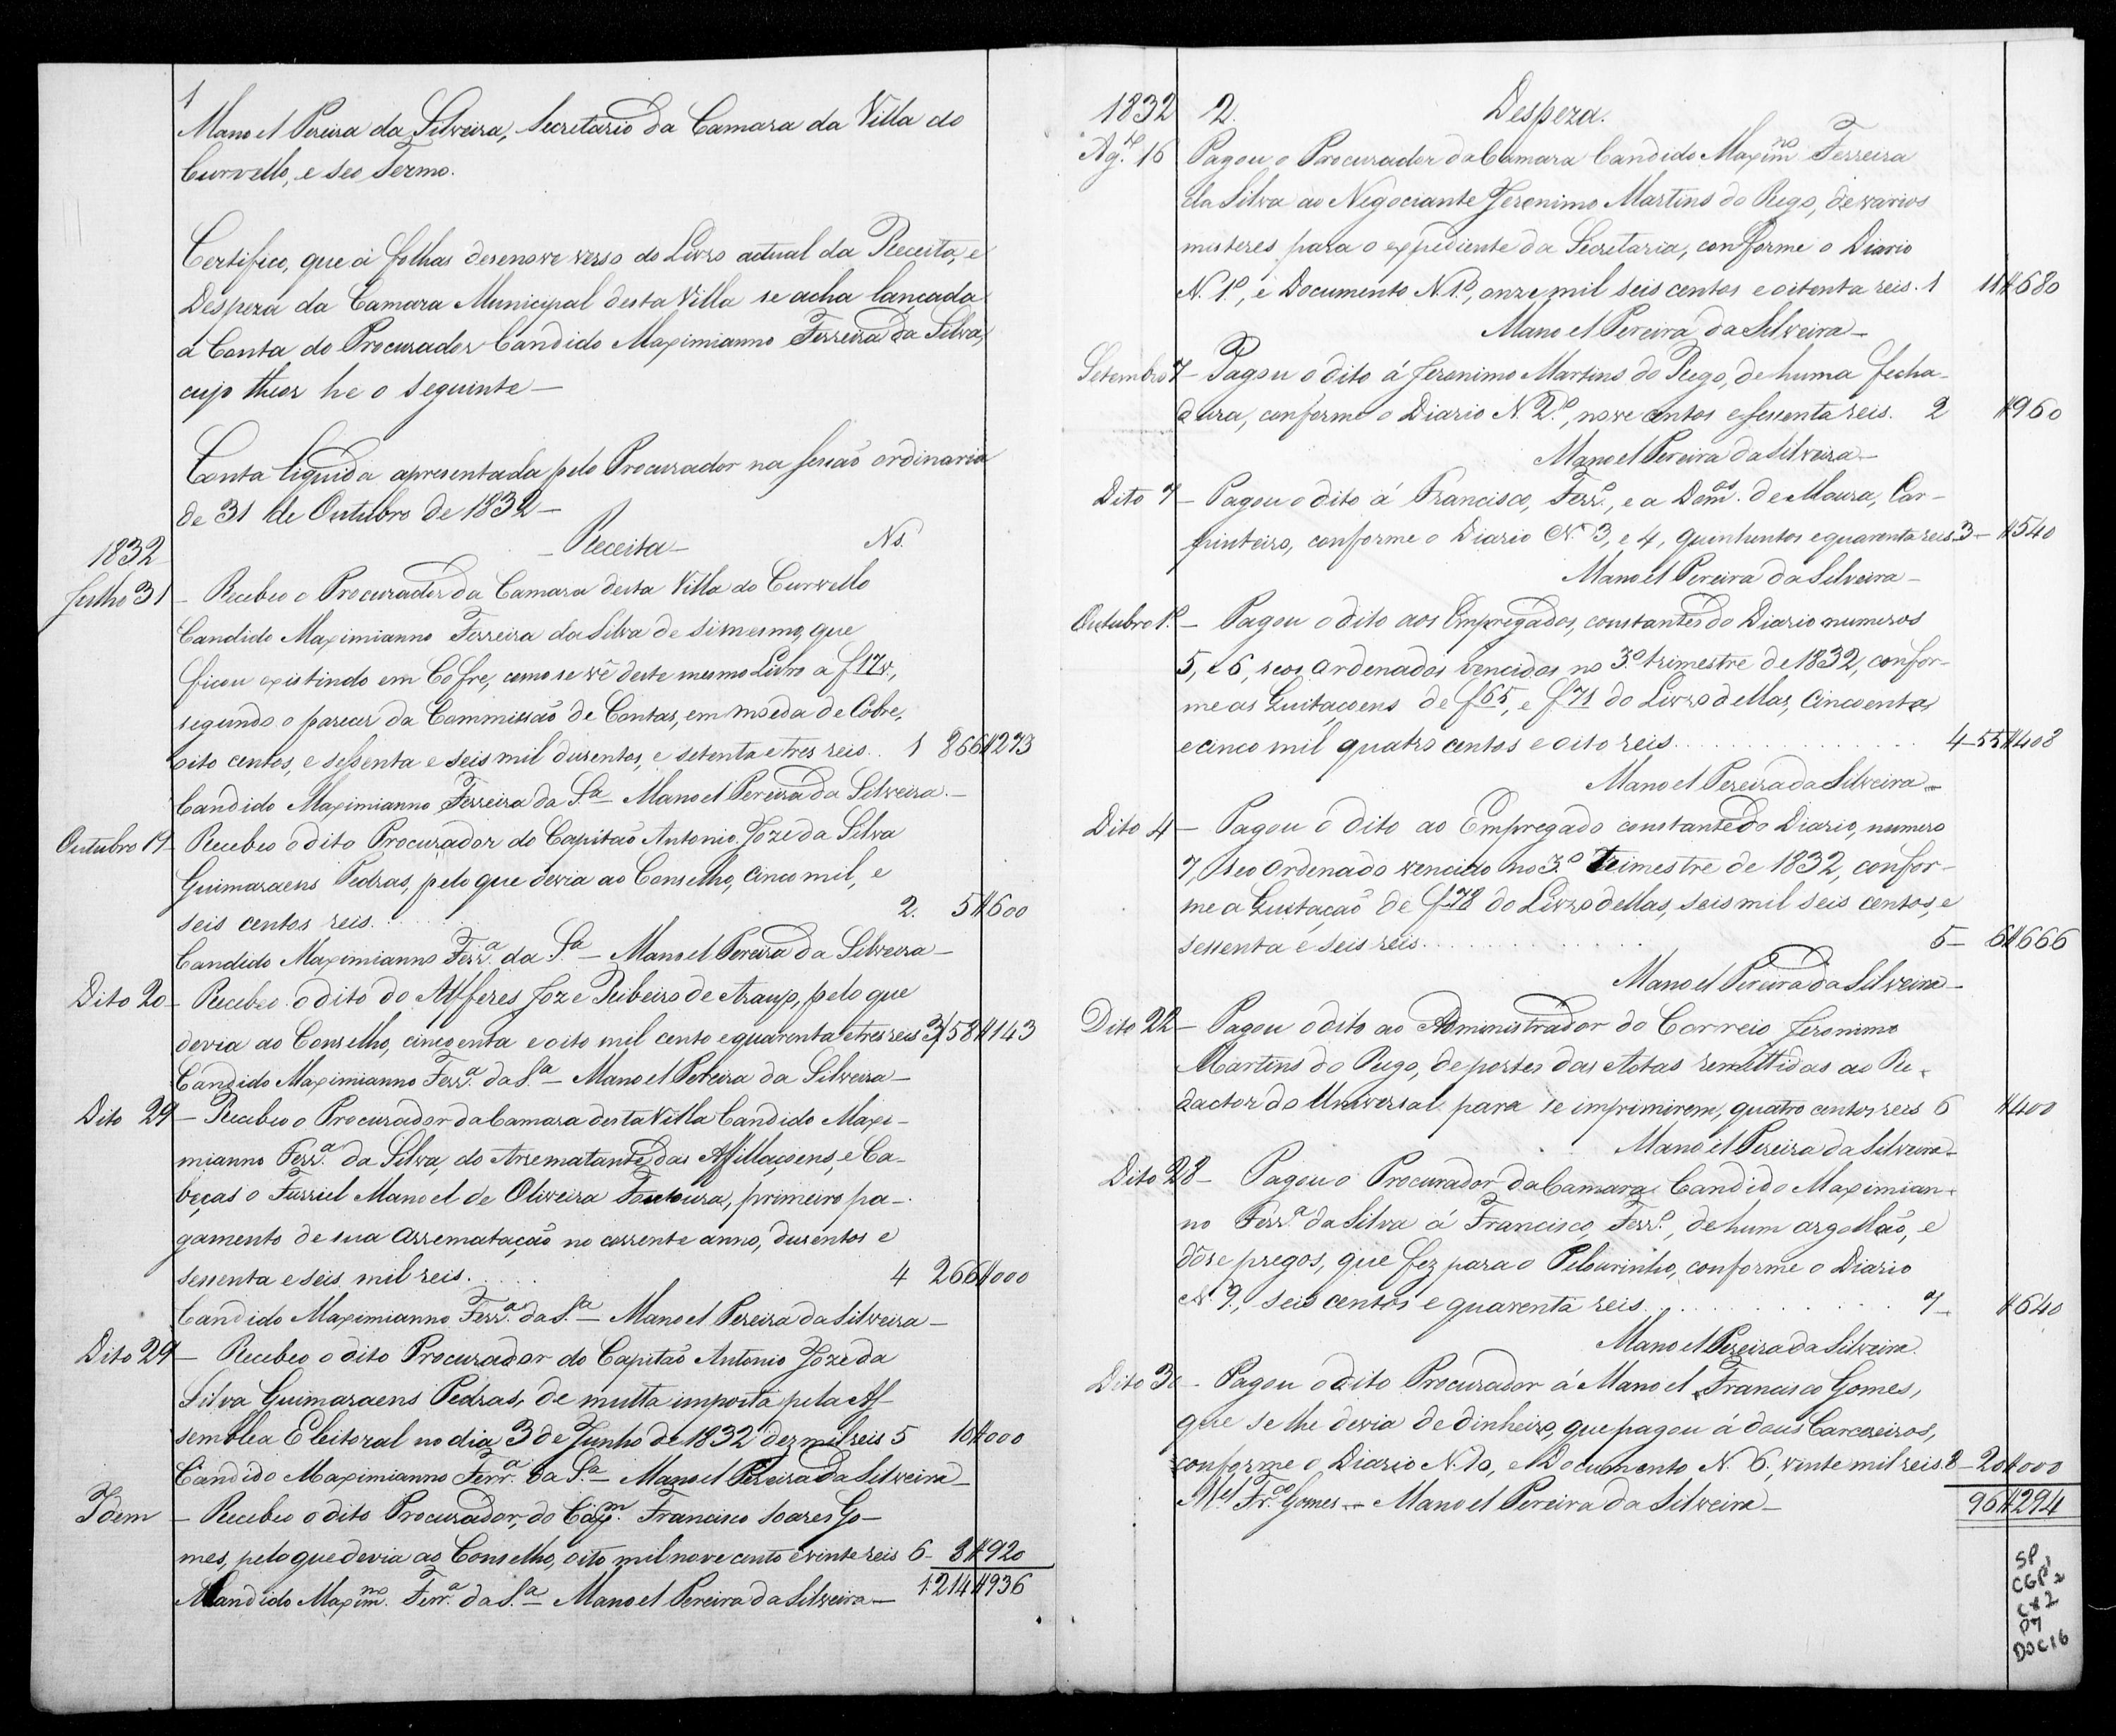 1
Manoel Pereira da Silveira, Secretario da Camara da Villa do
Curvello, e seo Termo.
Certifico, que á folhas desenove verso do Livro actual da Receita, e
Despeza da Camara Municipal desta Villa se acha lançada
a Conta do Procurador Candido Maximianno Ferreira da Silva,
cujo theor he o seguinte —
Conta liquida apresentada pelo Procurador na sessaõ ordinaria
de 31 de Outubro de 1832 —
1832 — Receita — Ns.
Julho 31 — Recebeo o Procurador da Camara desta Villa do Curvello
Candido Maximianno Ferreira da Silva de simesmo, que
ficou existindo em Cofre, como se vê deste mesmo Livro a f 17v.,
segundo o parecer da Commissaõ de Contas, em moeda de Cobre,
oito centos, e sessenta e seis mil dusentos, e setenta e tres reis.. 1 866#273
Candido Maximianno Ferreira da S.ª — Manoel Pereira da Silveira. —
Outubro 19 — Recebeo o dito Procurador do Capitaõ Antonio Joze da Silva
Guimaraens Pedras, pelo que devia ao Conselho, cinco mil, e
seis centos reis. . . . . 2. 5#600
Candido Maximianno Ferr.ª da S.ª — Manoel Pereira da Silveira —
Dito 20 — Recebeo o dito do Alfferes Joze Ribeiro de Araujo, pelo que
devia ao Conselho, cincoenta e oito mil cento e quarenta e tres reis 3 58#143
Candido Maximianno Ferr.ª da S.ª — Manoel Pereira da Silveira —
Dito 29 — Recebeo o Procurador da Camara desta Villa Candido Maxi-
mianno Ferr.ª da Silva, do Arrematante das Affillaçoens, e Ca-
beças o Furriel Manoel de Oliveira Foutoura, primeiro pa-
gamento de sua arremataçaõ no corrente anno, dusentos e
sessenta e seis mil reis. . . . . 4 266#000
Candido Maximianno Ferr.ª da S.ª — Manoel Pereira da Silveira —
Dito 29 — Recebeo o dito Procurador do Capitaõ Antonio Joze da
Silva Guimaraens Pedras, de multa imposta pela As-
semblea Eleitoral no dia 3 de Junho de 1832 dez mil reis 5 10#000
Candido Maximianno Ferr.ª da S.ª — Manoel Pereira da Silveira —
Idem — Recebeo o dito Procurador, do Cap.m Francisco Soares Go-
mes, pelo que devia ao Conselho, oito mil nove cento e vinte reis 6 - 8#920
Candido Maxim.no Ferr.ª da S.ª — Manoel Pereira da Silveira — 1:214#936
1832 2. Despeza.
Ag.to 16 Pagou o Procurador da Camara Candido Maxim.no Ferreira
da Silva ao Negociante Jeronimo Martins do Rego, de varios
misteres para o expediente da Secretaria, conforme o Diario
N. 1º, e Documento N. 1º, onze mil seis centos e oitenta reis. 1 11#680
Manoel Pereira da Silveira —
Setembro 7 — Pagou o dito á Jeronimo Martins do Rego, de huma fecha-
dura, conforme o Diario N. 2º, nove centos e sessenta reis. 2 #960
Manoel Pereira da Silveira —
Dito 7 — Pagou o dito á Francisco, Ferr.º, e a Dom.os de Moura, Car-
pinteiro, conforme o Diario N. 3, e 4, quinhentos e quarenta reis 3 — #540
Manoel Pereira da Silveira —
Outubro 1º — Pagou o dito aos Empregados, constantes do Diario numeros
5, e 6, seos ordenados vencidos no 3.º trimestre de 1832, confor-
me as Quitaçoens de f 65, e f 71 do Livro dellas, cincoenta,
e cinco mil quatro centos e oito reis. . . . . 4 — 55#408
Manoel Pereira da Silveira —
Dito 4 — Pagou o dito ao Empregado constante do Diario, numero
7, seo ordenado vencido no 3.º Trimestre de 1832, confor-
me a Quitaçaõ de f 78 do Livro dellas, seis mil seis centos, e
sessenta e seis reis. . . . . 5 — 6#666
Manoel Pereira da Silveira —
Dito 22 — Pagou o dito ao Administrador do Correio Jeronimo
Martins do Rego, de portes das Actas remettidas ao Re-
dactor do Universal para se imprimirem, quatro centos reis 6 #400
Manoel Pereira da Silveira —
Dito 28 — Pagou o Procurador da Camara Candido Maximian-
no Ferr.ª da Silva á Francisco, Ferr.º, de hum argollaõ, e
dôse pregos, que fez para o Pelourinho, conforme o Diario
N. 9, seis centos e quarenta reis. . . . . 7 — #640
Manoel Pereira da Silveira.
Dito 30 — Pagou o dito Procurador á Manoel Francisco Gomes,
que se lhe devia de dinheiro, que pagou á dous Carcereiros,
conforme o Diario N. 10, e Documento N. 6., vinte mil reis. 8 — 20#000
M.el Fr.co Gomes — Manoel Pereira da Silveira — 96#294
SP
CGP2
CX2
P7
DOC16